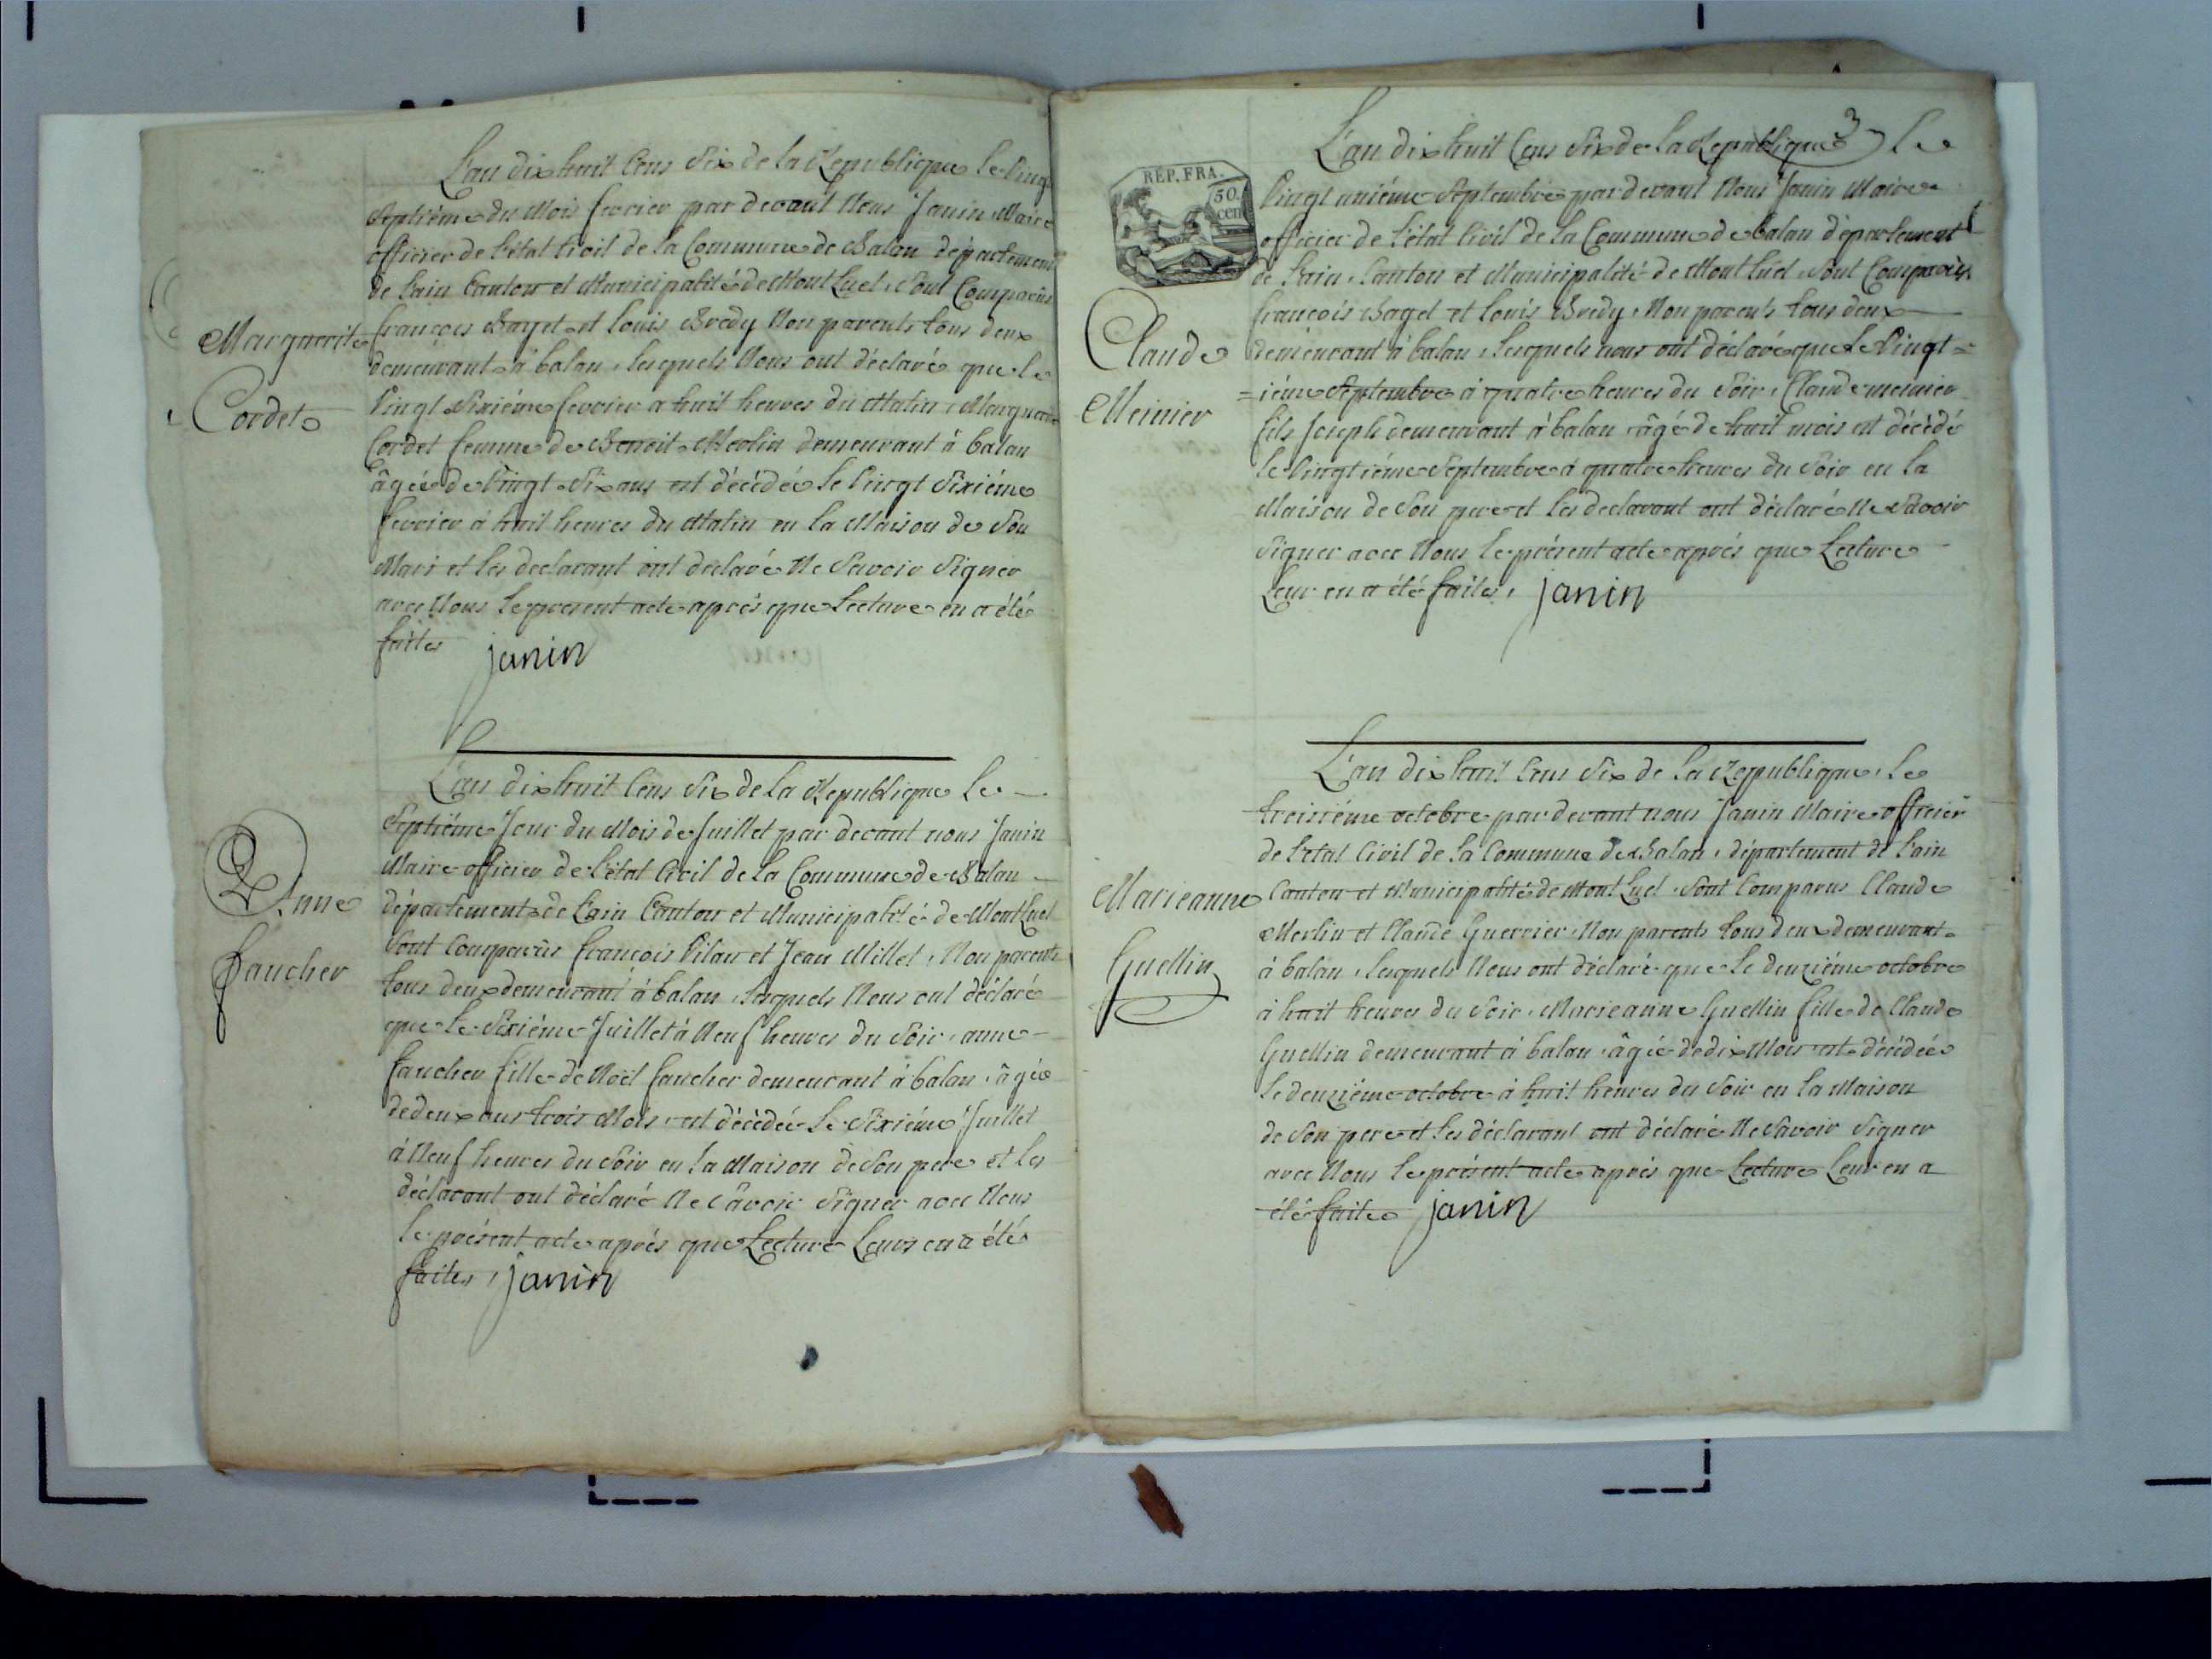 L'an dix huit Cens Six de la Republique le Vingt
Septiéme du Mois fevrier par devant Nous Janin Maire
officier de l'état Civil de la Commune de Balan département
de l'ain Canton et Municipalité de Mont Luel, Sont Comparüs
françois Bayet et louis Bredy Non parents tous deux
demeurant à balan, lesquels Nous ont déclaré que le
Vingt Sixiéme fevrier a huit heures du Matin, Marguerite
Cordet femme de Benoit Merlin demeurant à balan
âgée de Vingt Six ans est décédée le Vingt Sixiéme
fevrier à huit heures du Matin en la Maison de Son
Mari et les declarant ont declaré Ne Savoir Signer
avec Nous le present acte aprés que Lecture en a été
faite janin
Marguerite
Cordet
L'an dix huit Cens Six de la Republique le
Septiéme Jour du Mois de Juillet par devant nous Janin
Maire officier de l'état Civil de la Commune de Balan
département de l'ain Canton et Municipalité de Mont Luel
Sont Comparüs françois Pilan et Jean Millet, Non parents
tous deux demeurant à balan, lesquels Nous ont déclaré
que le Sixiéme Juillet à Neuf heures du Soir, anne
faucher fille de Noël faucher demeurant à balan, âgée
de deux ans trois Mois, est décédée le Sixiéme Juillet
à Neuf heures du Soir en la Maison de Son pere et les
déclarant ont déclaré Ne Savoir Signer avec Nous
le présent acte aprés que Lecture Leurs en a été
faites, janin
Anne
faucher
3
REP. FRA.
50.
cen
L'an dix huit Cens Six de la Republique le
Vingt uniéme Septembre par devant Nous Janin Maire
officier de l'état Civil de la Commune de balan département
de l'ain, Canton et Municipalité de Mont Luel, Sont Comparüs
françois Bayet et louis Bredy, Non parents tous deux
demeurant à balan, lesquels nous ont déclaré que le Vingt=
=iéme Septembre à quatre heures du Soir, Claude meinier
fils Joseph demeurant à balan âgé de huit mois est décédé
le Vingtiéme Septembre à quatre heures du Soir en la
Maison de Son pere et les declarant ont déclaré Ne Savoir
Signer avec Nous le présent acte aprés que Lecture
Leur en a été faites, janin
Claude
Meinier
L'an dix huit Cens Six de la Republique, le
troisiéme octobre par devant nous Janin Maire officier
de l'état Civil de la Commune de Balan, département de l'ain
Canton et Municipalité de Mont Luel, Sont Comparus Claude
Merlin et Claude Guerrier, Non parents tous deux demeurant
à balan, lesquels Nous ont déclaré que le deuxiéme octobre
à huit heures du Soir, Marieanne Guellin fille de Claude
Guellin demeurant à balan, âgée de dix Mois est décédée
le deuxiéme octobre à huit heures du Soir en la Maison
de Son pere et les déclarant ont déclaré Ne Savoir Signer
avec Nous le présent acte aprés que Lecture Leur en a
été faite janin
Marieanne
Guellin